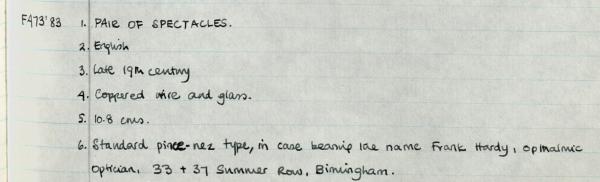 F473'83 1. PAIR OF SPECTACLES.
2. English
3. Late 19th century
4. Coppered wire and glass.
5. 10.8 cms.
6. Standard pince-nez type, in case bearing the name Frank Hardy, opthalmic
optician, 33 + 37 Summer Row, Birmingham.